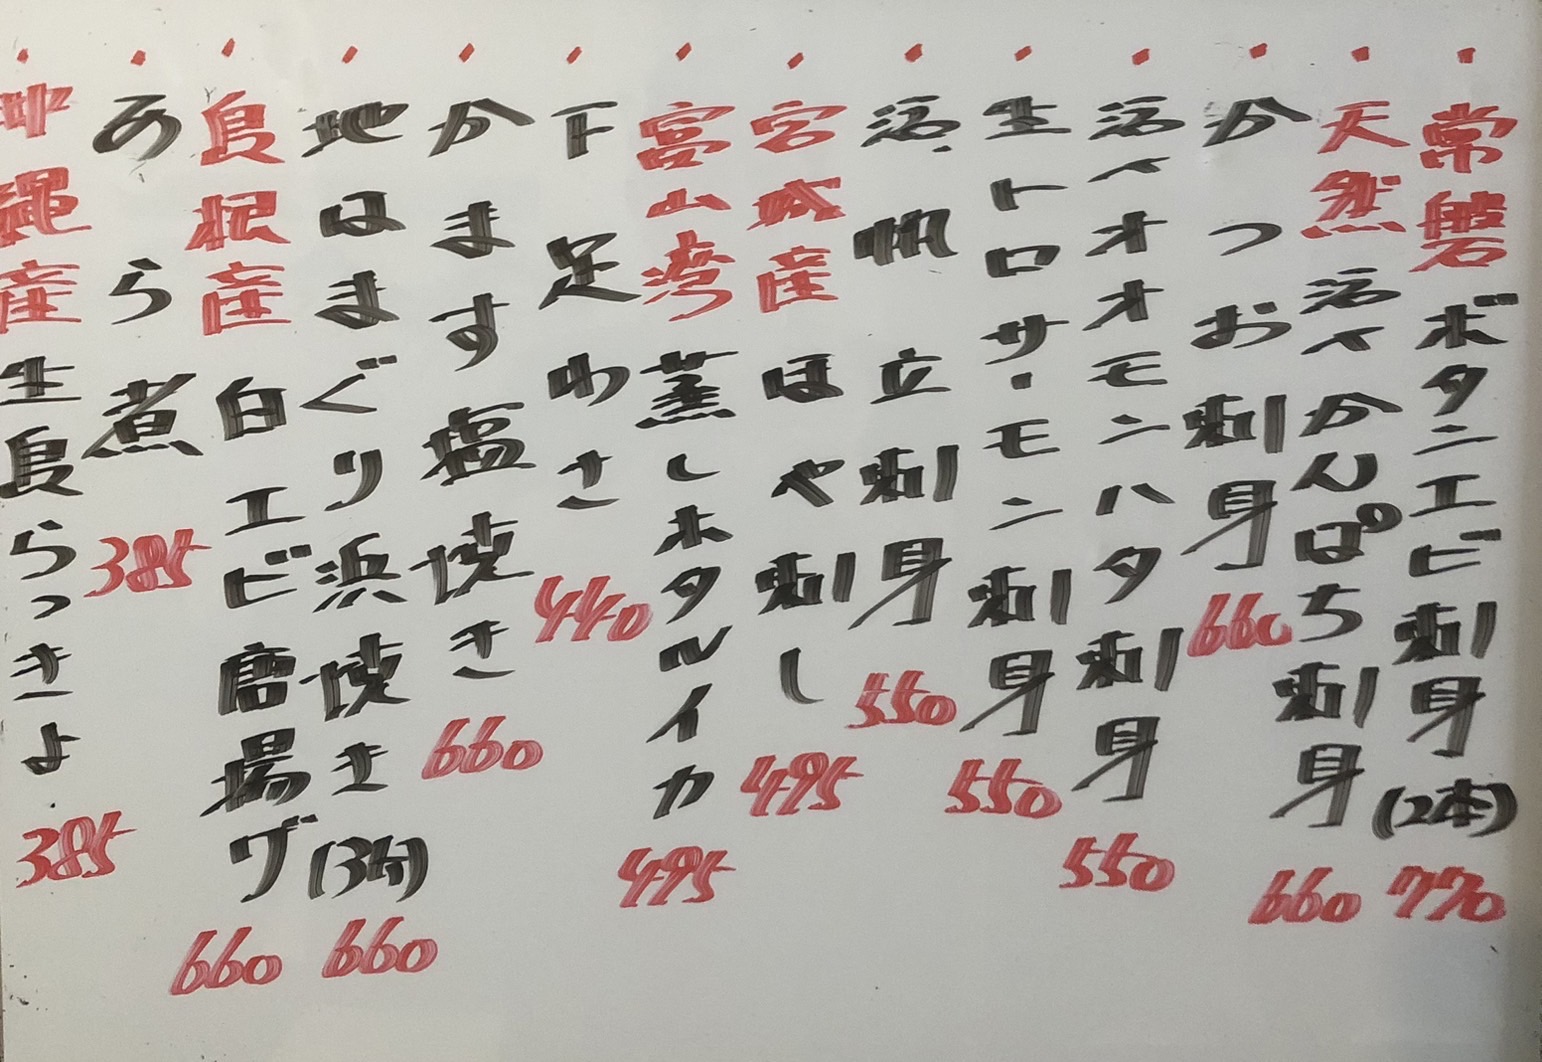 ・常磐ボタンエビ刺身(2本) 770
・天然活〆かんぱち刺身 660
・かつお刺身 660
・活〆オオモンハタ刺身 550
・生トロサーモン刺身 550
・活帆立刺身 550
・宮城産ほや刺し 495
・富山湾蒸しホタルイカ 495
・下足わさ 440
・かます塩焼き 660
・地はまぐり浜焼き(3ケ) 660
・島根産白エビ唐揚げ 660
・あら煮 385
・沖縄産生島らっきょ 385